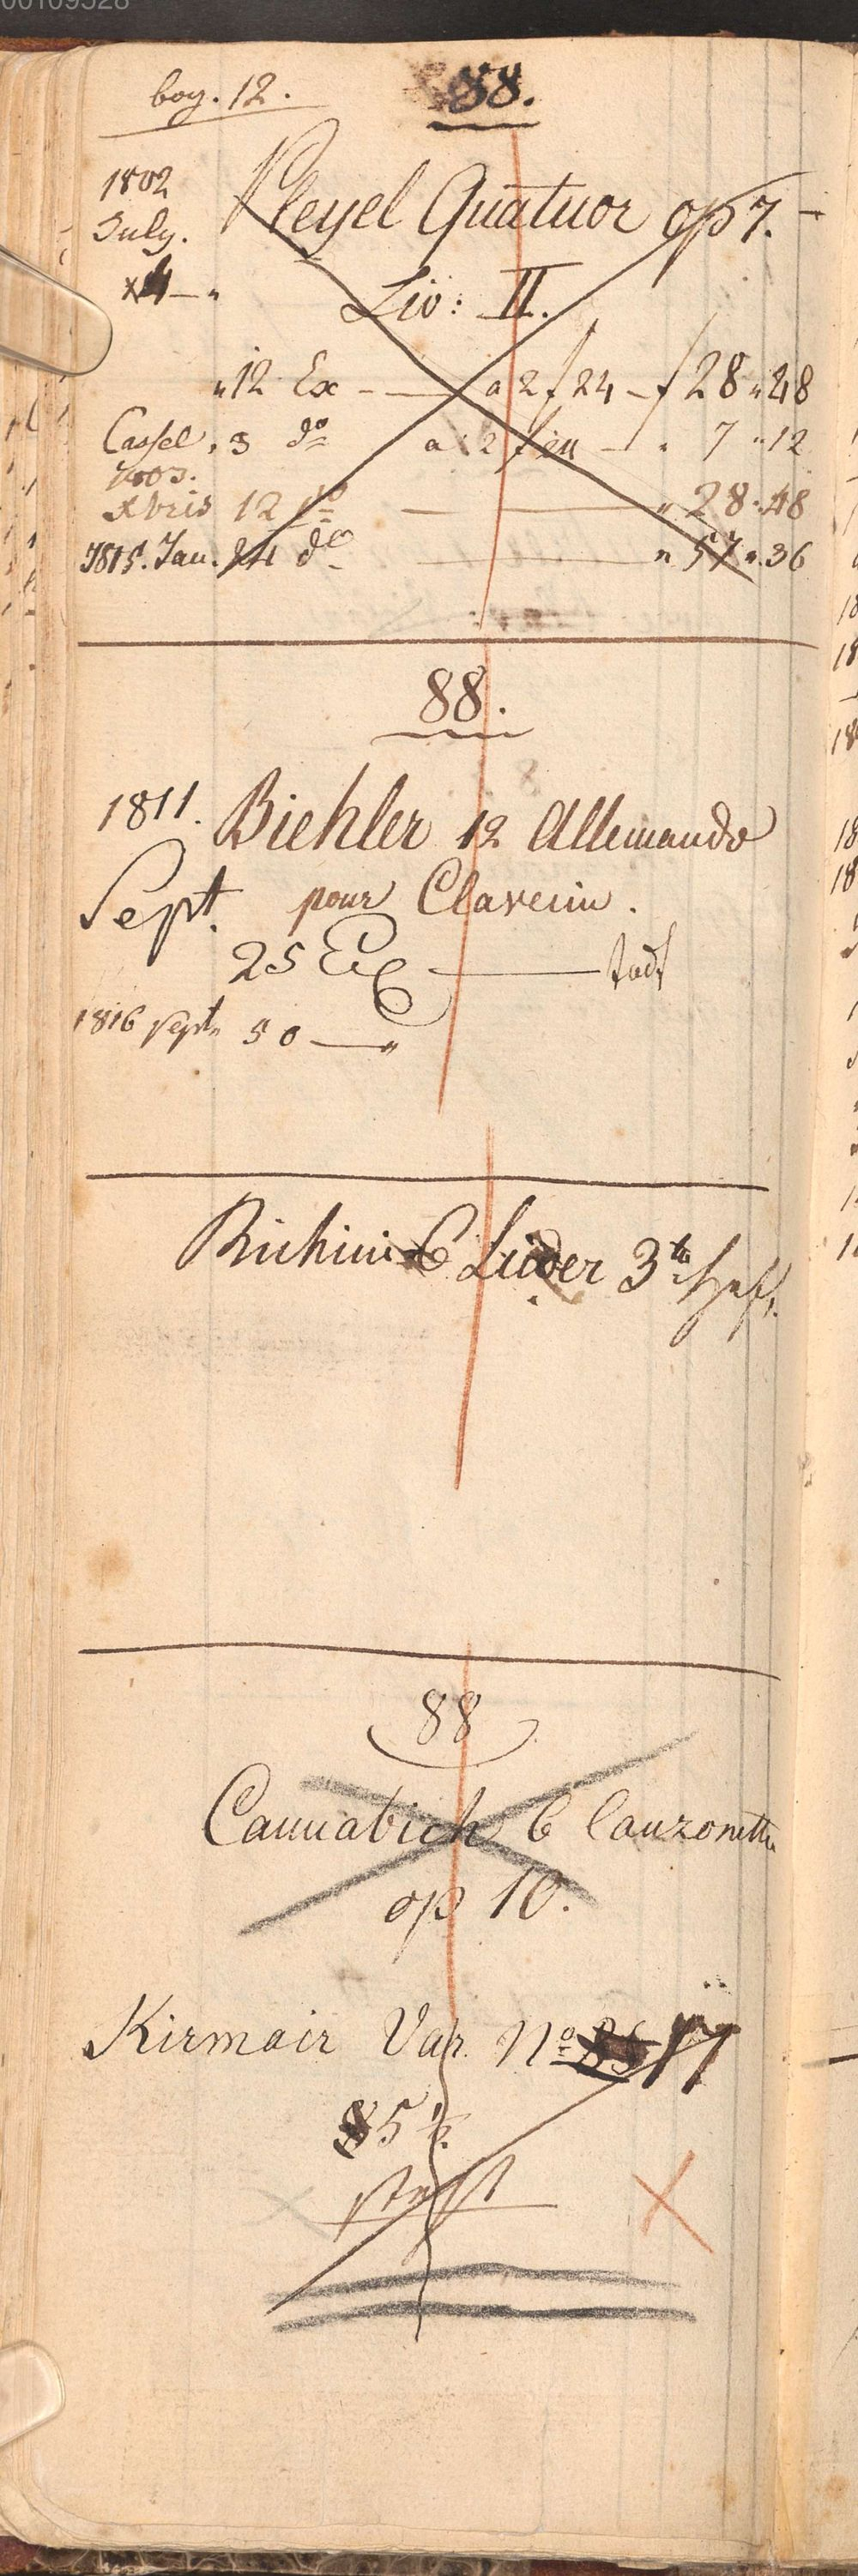 00109528
bog. 12. 88.
1802 Pleyel Quatuor op 7.
July.
x4 — " Liv: II.
" 12 Ex — a 2 f 24 — f 28 " 48
Cassel, 3 do a 2 f 24 — " 7 " 12
1803.
Xbris 12 do — " 28 " 48
1815. Jan. 24 do — " 57 " 36
88.
1811. Biehler 12 Allemande
Sept. pour Clavecin.
25 Ex —
1816 Sept 50 — "
Righini 6 Lieder 3te Heft.
88
Cannabich 6 Canzonette
op 10.
Kirmair Var. No 17
85